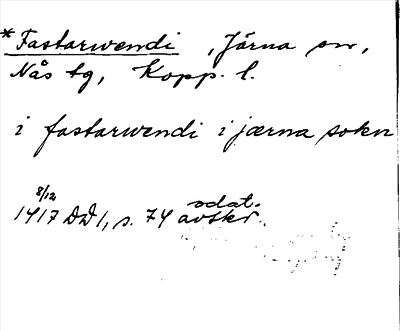 *Fastarwendi, Järna sn,
Nås tg, Kopp. l.
i fastarwendi i jærna sokn
8/12 odat.
1417 DD1, s. 74 avskr.